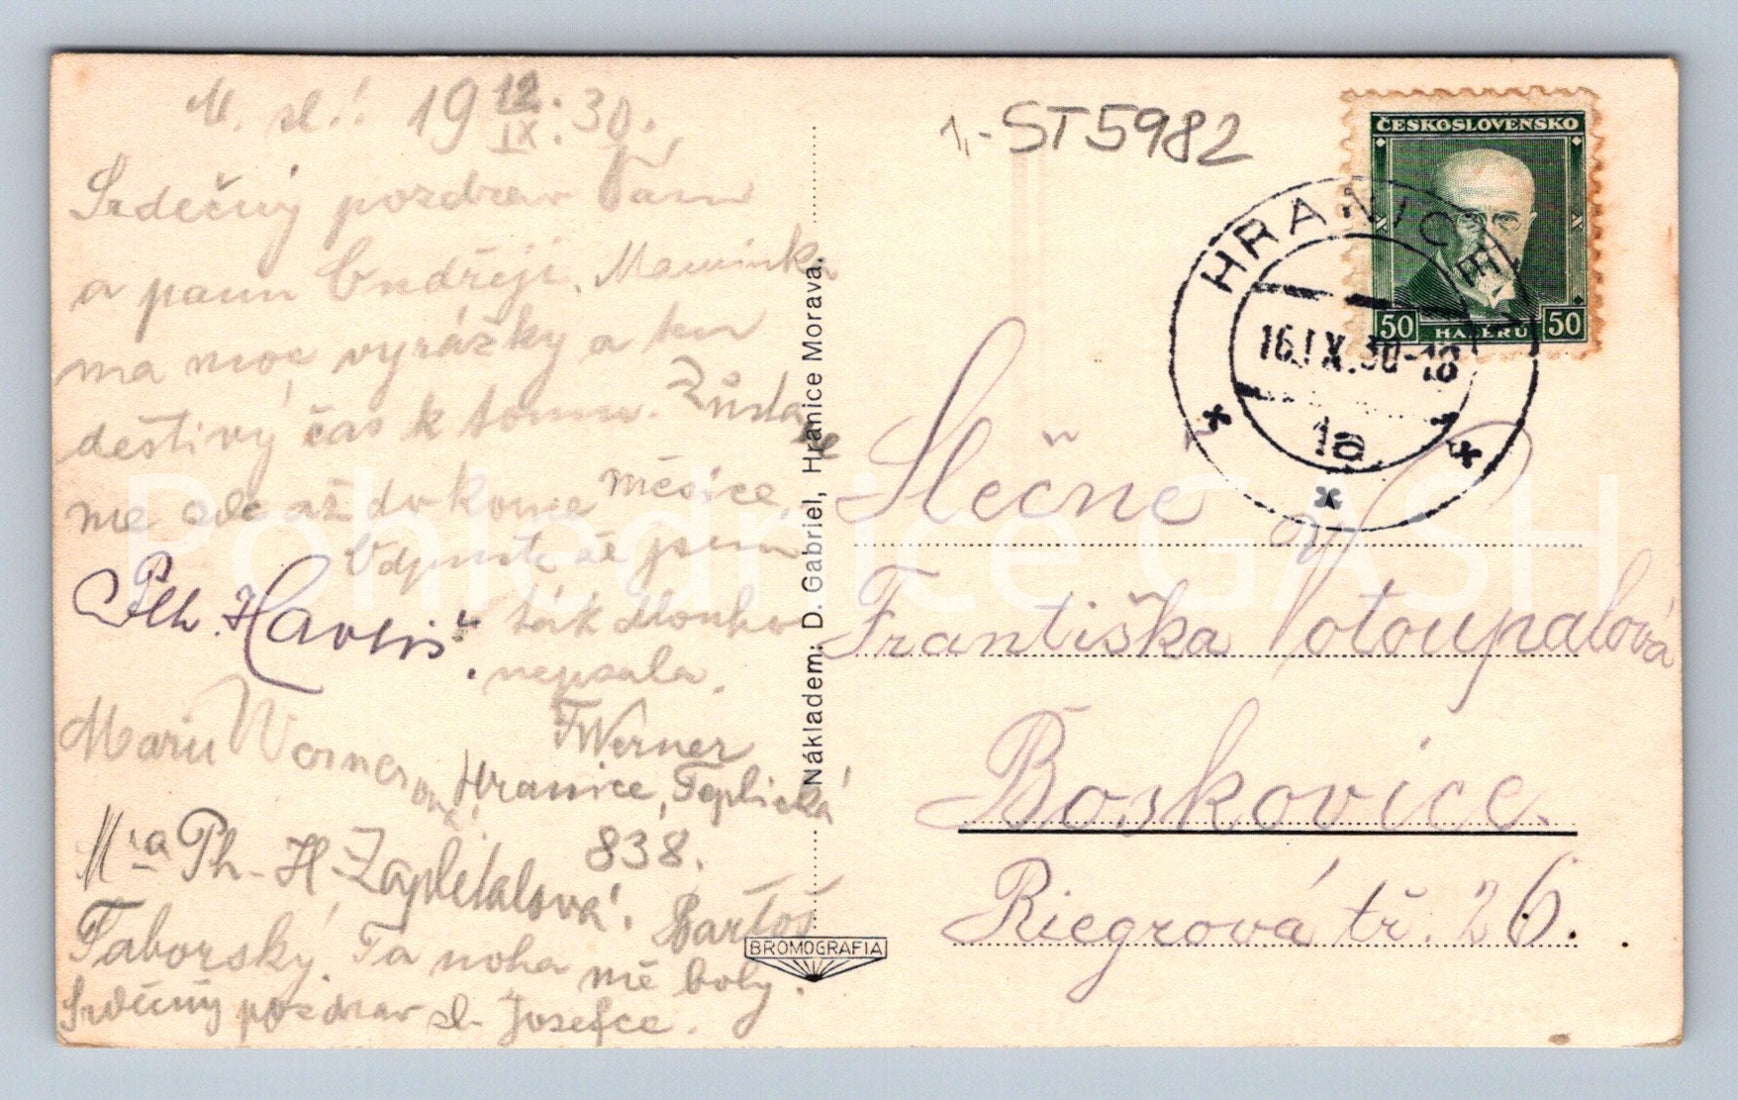 M. sl.! 19 12/IX. 30.
Srdečný pozdrav Vám
a panu Ondřeji. Maminka
ma moc vyrážky a ten
deštivý čas k tomu. Zůsta
me ale až do konce měsíce.
Odpusťte že jsem
tak dlouho
nepsala.
Ph. Havliš
Marie Wernerova
FWerner
Hranice, Teplická
838.
Mra Ph. H. Zapletalová.
Bartoš
Táborský. Ta noha mě boly.
Srdečný pozdrav sl. Josefce.
Nákladem: D. Gabriel, Hranice Morava.
BROMOGRAFIA
1,- ST5982
ČESKOSLOVENSKO
50 HALÉŘŮ 50
HRANICE
16.IX.30-18
1a
Slečně
Františka Votoupalová
v
Boskovice.
Riegrová tř. 26.
Pohlednice GASH